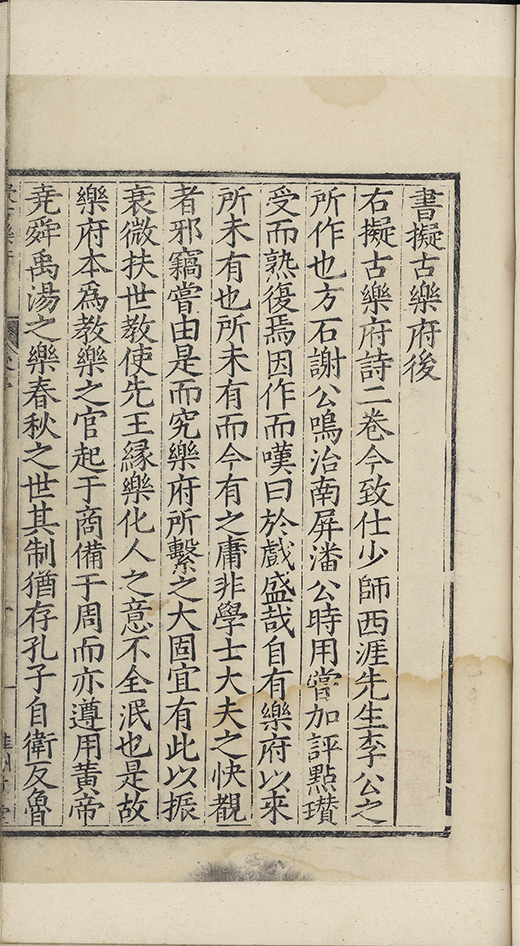 書擬古樂府後
右擬古樂府詩二卷今致仕少師西涯先生李公之
所作也方石謝公鳴治南屏潘公時用嘗加評點瓚
受而熟復焉因作而嘆曰於戲盛哉自有樂府以來
所未有也所未有而今有之庸非學士大夫之快覩
者邪竊嘗由是而究樂府所繫之大固宜有此以振
衰微扶世教使先王緣樂化人之意不全泯也是故
樂府本爲教樂之官起于商備于周而亦遵用黃帝
堯舜禹湯之樂春秋之世其制猶存孔子自衛反魯